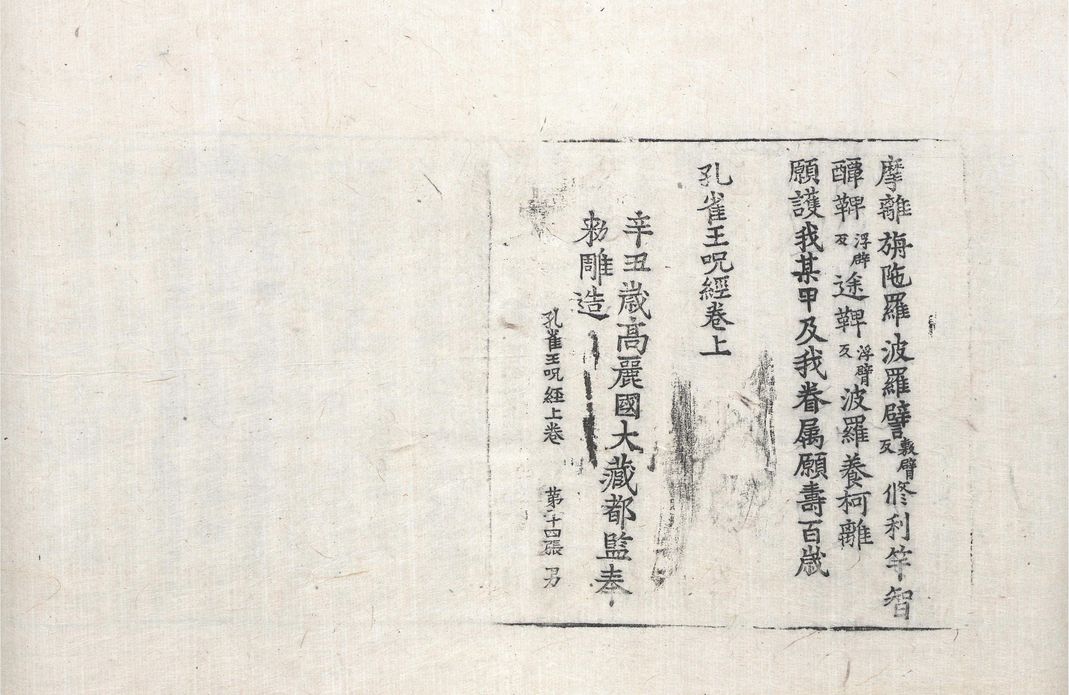 摩離旃陁羅波羅譬敷臂反修利竿智
鞞浮臂反途鞞浮臂反波羅養柯離
願護我某甲及我眷属願壽百歲
孔雀王呪經卷上
辛丑歲高麗國大藏都監奉
勑雕造
孔雀王呪經上卷 第二十四張 男